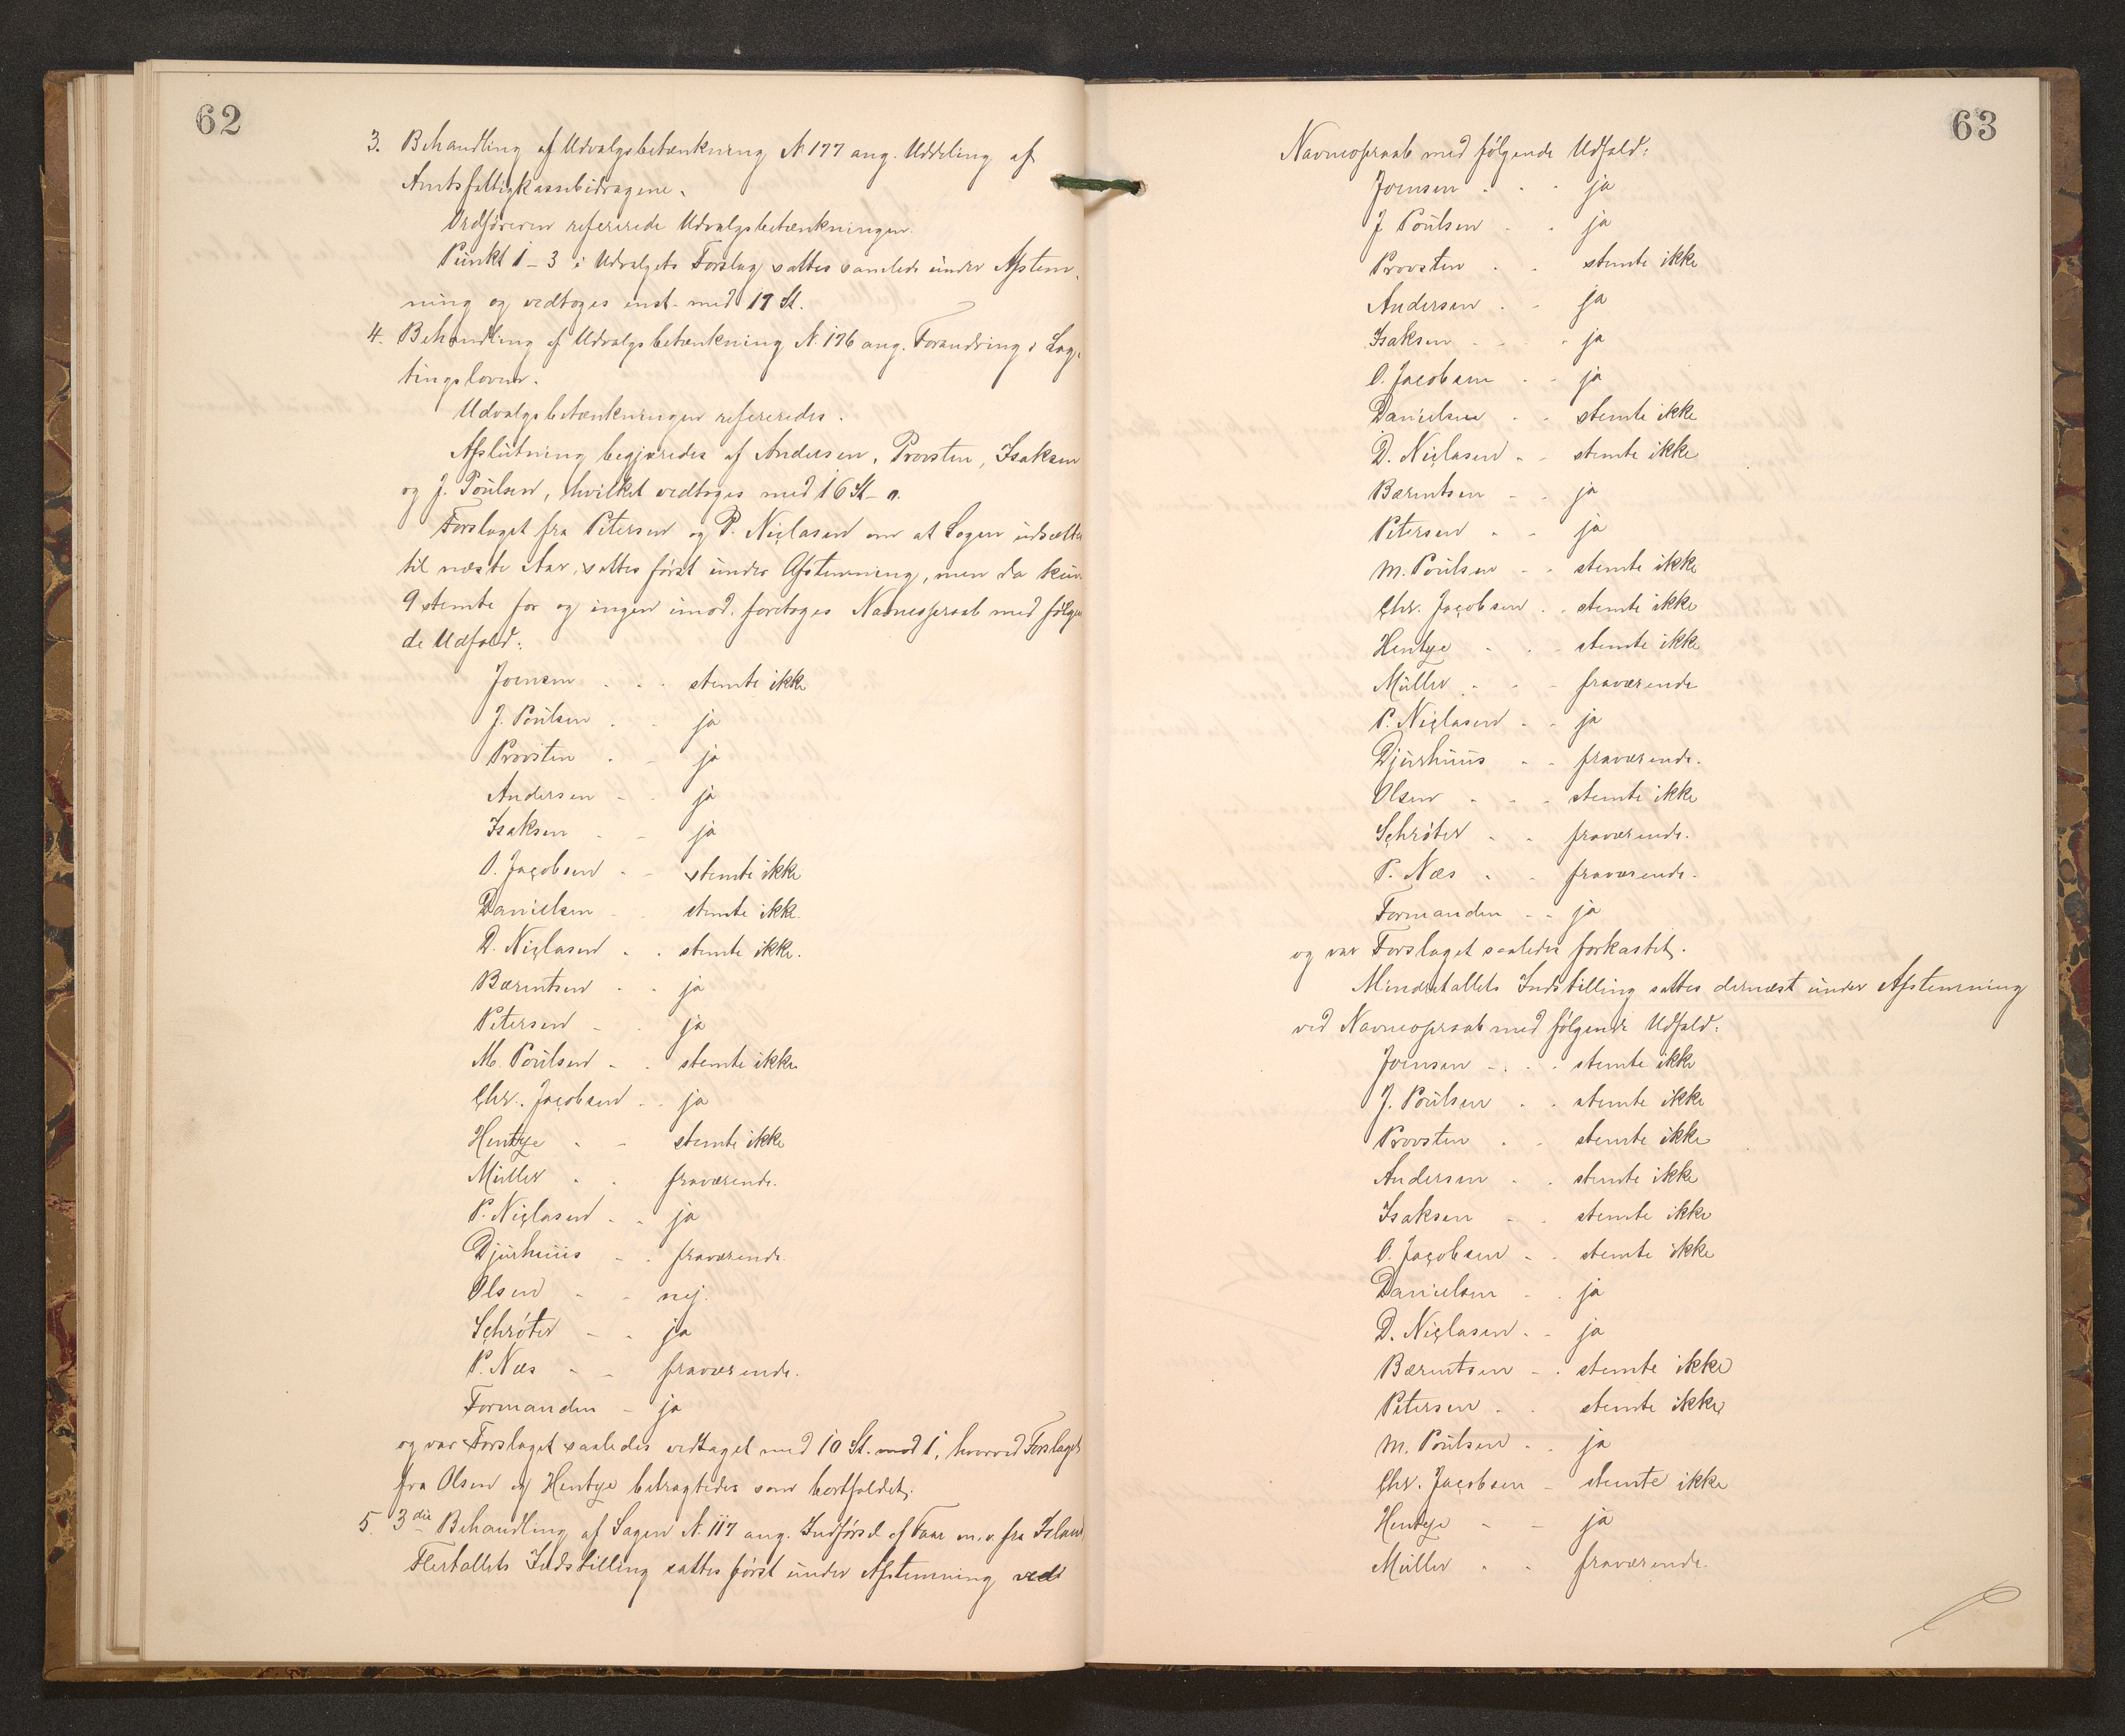 62
3. Behandling af Udvalgsbetænkning N. 177 ang. Uddeling af
Amtsfattigkassebidragene.
Ordføreren refererede Udvalgsbetænkningen.
Punkt 1 - 3 i Udvalgets Forslag sattes samlede under Afstem-
ning og vedtoges enst. med 17 St.
4. Behandling af Udvalgsbetænkning N. 176 ang. Forandring i Lag-
tingsloven.
Udvalgsbetænkningen refereredes.
Afslutning begjæredes af Andersen, Provsten, Isaksen
og J. Poulsen, hvilket vedtoges med 16 St - 0.
Forslaget fra Petersen og P. Niclasen om at Sagen udsættes
til næste Aar, sattes først under Afstemning, men da kun
9 stemte for og ingen imod, foretoges Navneopraab med følgen
de Udfald:
Joensen . . . stemte ikke
J. Poulsen . - ja
Provsten . - ja
Andersen - . ja
Isaksen . - ja
O. Jacobsen - - stemte ikke
Danielsen . . stemte ikke.
D. Niclasen . . stemte ikke.
Bærentsen - . ja
Petersen - . ja
M. Poulsen - . stemte ikke
Chr. Jacobsen - . ja
Hentze . - stemte ikke
Müller . . fraværende.
P. Niclasen - . ja
Djurhuus - . fraværende.
Olsen - - nej.
Schrøter - . ja
P. Næs - - fraværende.
Formanden - ja
og var Forslaget saaledes vedtaget med 10 St. mod 1, hvorved Forslaget
fra Olsen og Hentze betragtedes som bortfaldet.
5. 3die Behandling af Sagen N. 117 ang. Indførsel af Faar m.v. fra Island
Flertallets Indstilling sattes først under Afstemning ved
63
Navneopraab med følgende Udfald:
Joensen . . . ja
J Poulsen . . ja
Provsten . . stemte ikke
Andersen . - ja
Isaksen - - . ja
O. Jacobsen . - ja
Danielsen . - stemte ikke
D. Niclasen . - stemte ikke
Bærentsen - - ja
Petersen . - ja
M. Poulsen - . stemte ikke
Chr. Jacobsen . . stemte ikke
Hentze . . - stemte ikke
Müller . . - fraværende
P. Niclasen - - ja
Djurhuus . - fraværende.
Olsen . . . stemte ikke
Schrøter . . fraværende.
P. Næs . - fraværende.
Formanden - - ja
og var Forslaget saaledes forkastet.
Mindretallets Indstilling sattes dernæst under Afstemning
ved Navneopraab med følgende Udfald:
Joensen - . . stemte ikke
J. Poulsen . . stemte ikke
Provsten . - stemte ikke
Andersen . . stemte ikke
Isaksen - . stemte ikke
O. Jacobsen - . stemte ikke
Danielsen - . ja
D. Niclasen . - ja
Bærentsen - . stemte ikke
Petersen . . stemte ikke
M. Poulsen . . ja
Chr. Jacobsen - stemte ikke
Hentze - - ja
Müller . . fraværende.